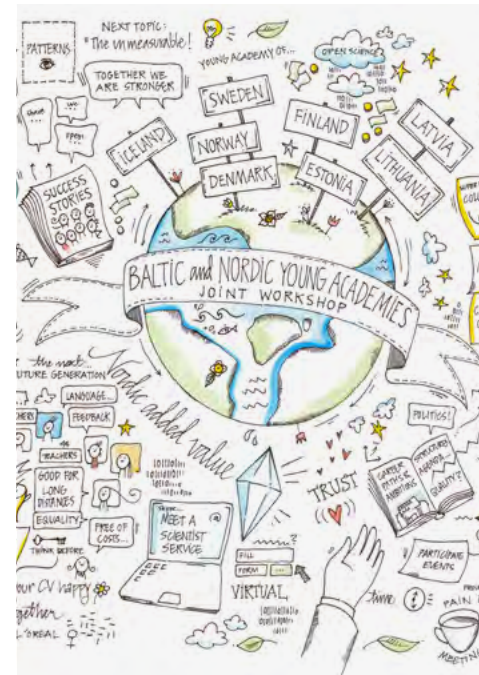 NEXT TOPIC:
"The unmeasurable!
PATTERNS
TOGETHER WE
ARE STRONGER
YOUNG ACADEMY OF...
OPEN SCIENCE
ICELAND
SWEDEN
NORWAY
DENMARK
FINLAND
ESTONIA
LATVIA
LITHUANIA
SUCCESS
STORIES
BALTIC and NORDIC YOUNG ACADEMIES
JOINT WORKSHOP
the next...
FUTURE GENERATION
Nordic added value
LANGUAGE...
FEEDBACK
TEACHERS
GOOD FOR
LONG
DISTANCES
EQUALITY
FREE OF
COSTS...
THINK BEFORE
our CV happy
gether
L'OREAL
MEET A
SCIENTIST
SERVICE
FILL
FORM
VIRTUAL
TRUST
POLITICS!
CAREER
PATHS &
AMBITIONS
AGENDA
PARTICIPATE
EVENTS
time
PAIN
MEETING